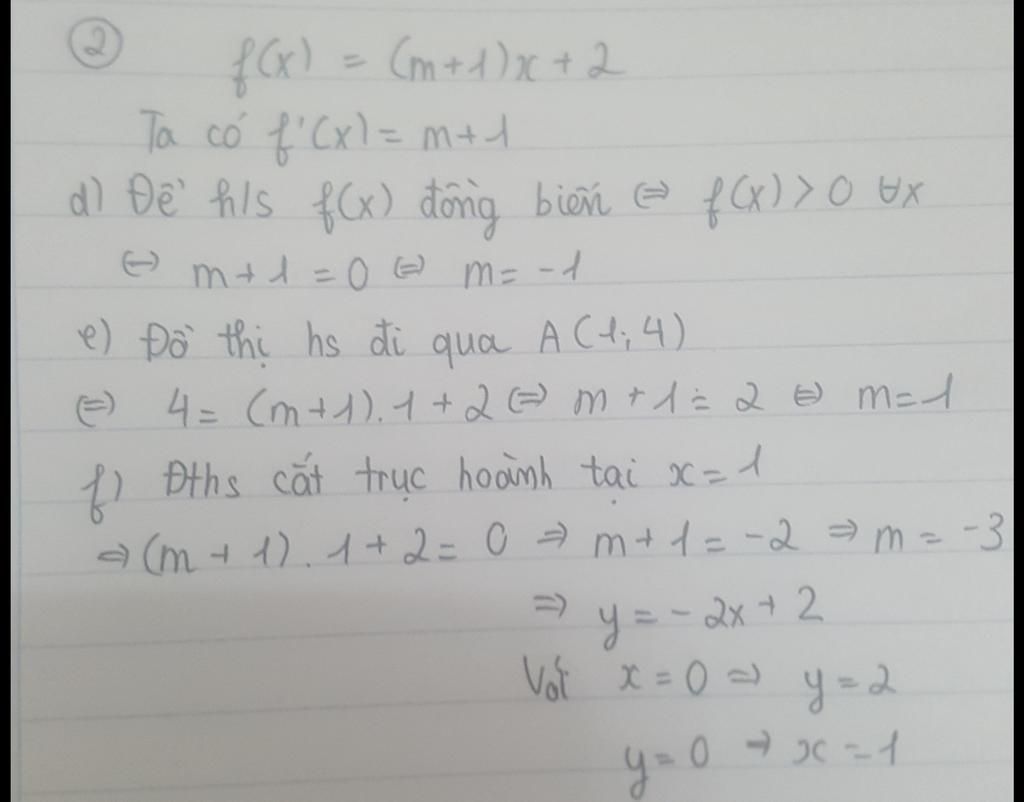 ② f(x) = (m+1)x + 2
Ta có f'(x) = m+1
d) Để h/s f(x) đồng biến ⇔ f(x) > 0 ∀x
⇔ m + 1 = 0 ⇔ m = -1
e) Đồ thị hs đi qua A(1; 4)
⇔ 4 = (m+1).1 + 2 ⇔ m + 1 = 2 ⇔ m = 1
f) Đths cắt trục hoành tại x = 1
⇒ (m + 1) . 1 + 2 = 0 ⇒ m + 1 = -2 ⇒ m = -3
⇒ y = -2x + 2
Với x = 0 ⇒ y = 2
y = 0 → x = 1